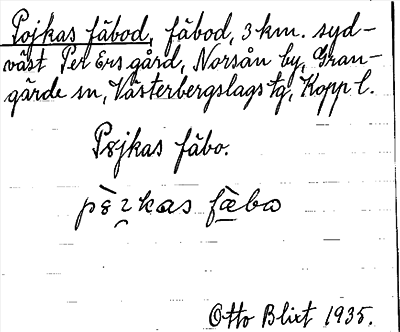 Pojkas fäbod, fäbod, 3 km. syd-
väst Per Ers gård, Norsån by, Gran-
gärde sn, Västerbergslags tg, Kopp l.
P8jkas fäbo.
Otto Blixt 1935.